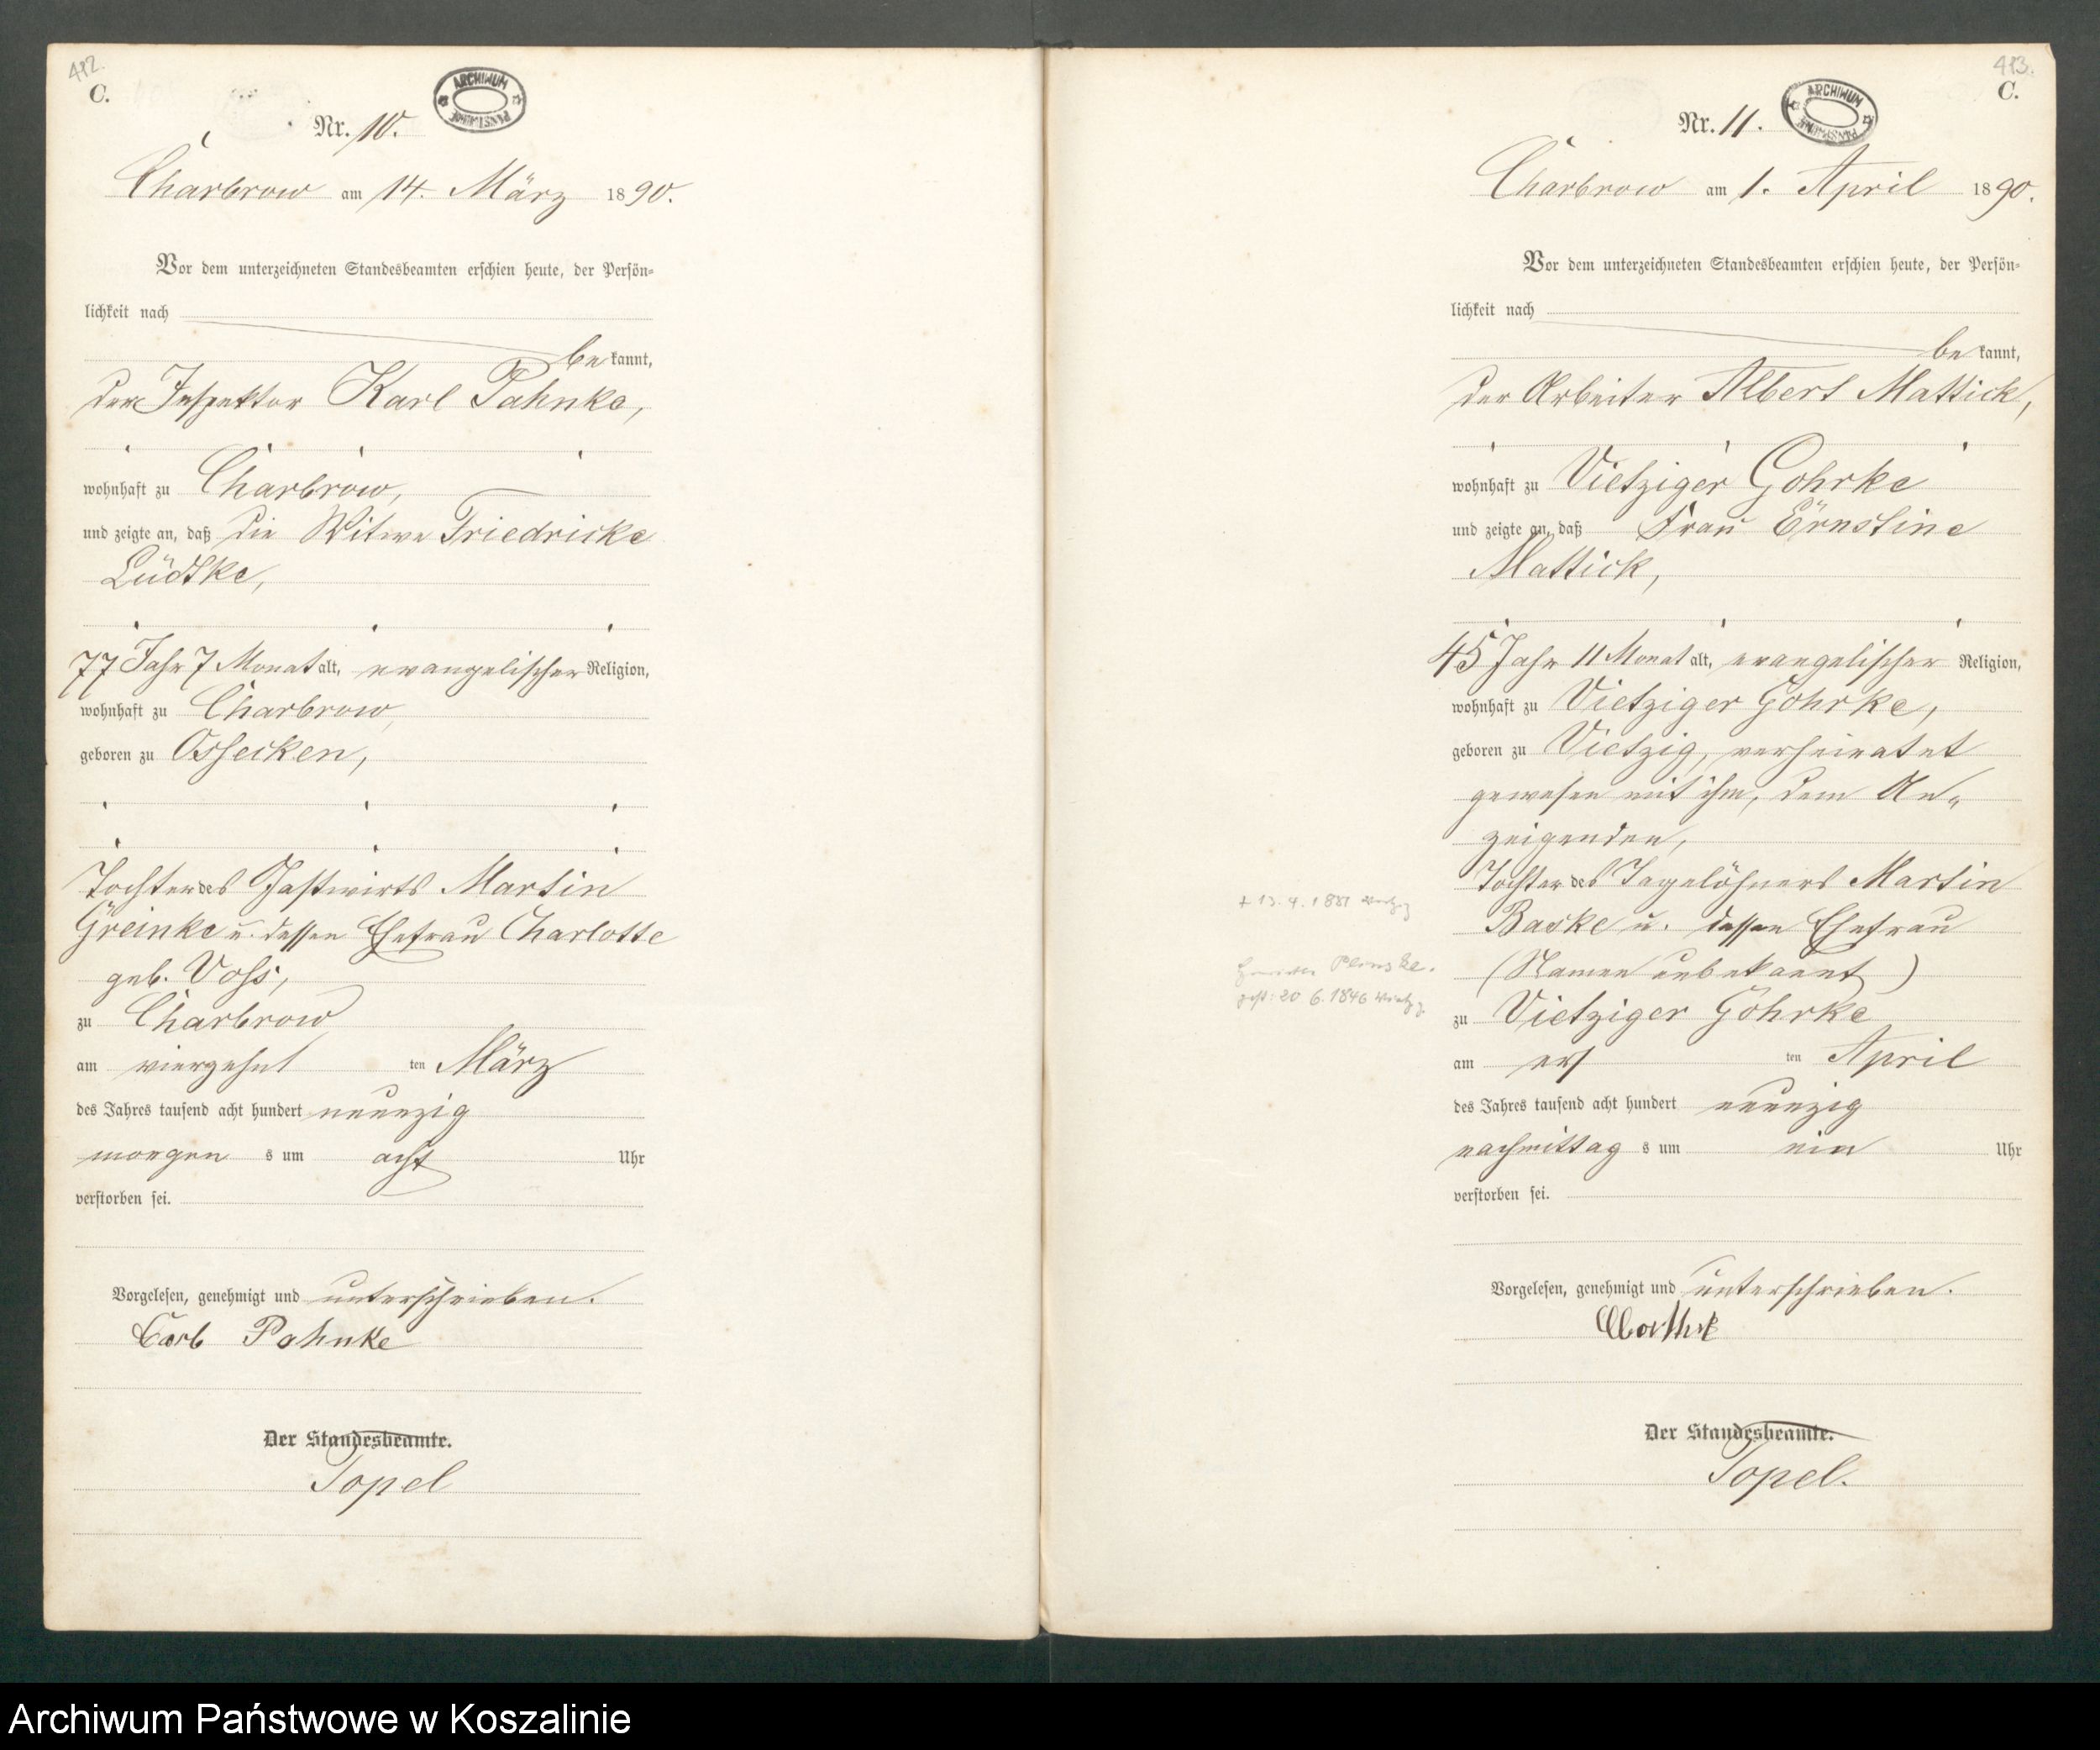 412.
C.
ARCHIWUM
PAŃSTWOWE
Nr. 10.
Charbrow am 14. März 1890.
Vor dem unterzeichneten Standesbeamten erschien heute, der Persön-
lichkeit nach
be kannt,
der Inspektor Karl Pahnke,
wohnhaft zu Charbrow,
und zeigte an, daß die Witwe Friedricke
Lüdtke,
77 Jahr 7 Monat alt, evangelischer Religion,
wohnhaft zu Charbrow,
geboren zu Ossecken,
Tochter des Gastwirts Martin
Greinke u. dessen Ehefrau Charlotte
geb. Voss,
zu Charbrow
am vierzehnt ten März
des Jahres tausend acht hundert neunzig
morgen s um acht Uhr
verstorben sei.
Vorgelesen, genehmigt und unterschrieben.
Carl Pahnke
Der Standesbeamte.
Topel
413.
C.
ARCHIWUM
PAŃSTWOWE
Nr. 11.
Charbrow am 1. April 1890.
Vor dem unterzeichneten Standesbeamten erschien heute, der Persön-
lichkeit nach
be kannt,
der Arbeiter Albert Mattick,
wohnhaft zu Vietziger Gohrke
und zeigte an, daß Frau Ernstine
Mattick,
45 Jahr 11 Monat alt, evangelischer Religion,
wohnhaft zu Vietziger Gohrke,
geboren zu Vietzig, verheiratet
gewesen mit ihm, dem An-
zeigenden,
Tochter des Tagelöhners Martin
+ 13. 4. 1881
Baske u. dessen Ehefrau
(Namen unbekannt)
gest: 20 6. 1846
zu Vietziger Göhrke
am erst ten April
des Jahres tausend acht hundert neunzig
nachmittag s um ein Uhr
verstorben sei.
Vorgelesen, genehmigt und unterschrieben.
Der Standesbeamte.
Topel.
Archiwum Państwowe w Koszalinie